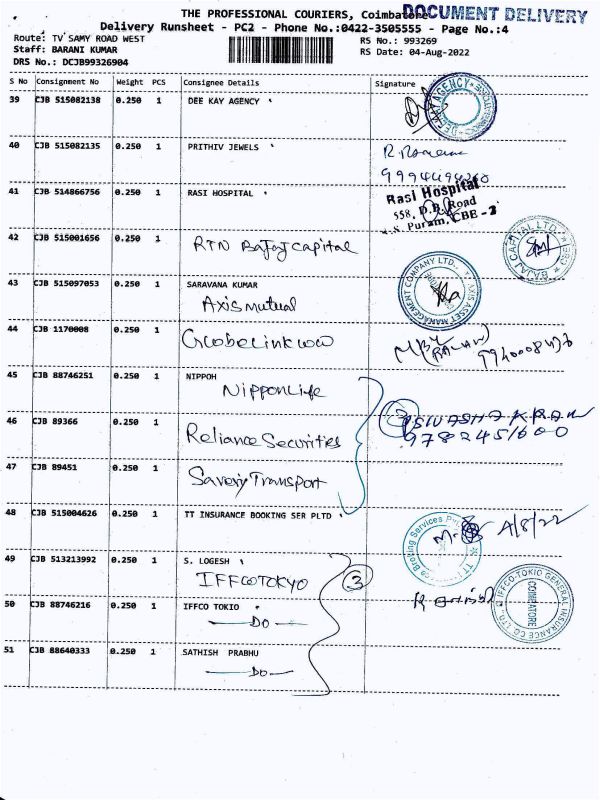 THE PROFESSIONAL COURIERS, Coimbatore
DOCUMENT DELIVERY
Delivery Runsheet - PC2 - Phone No.:0422-3505555 - Page No.:4
Route: TV SAMY ROAD WEST
RS No.: 993269
Staff: BARANI KUMAR
RS Date: 04-Aug-2022
DRS No.: DCJB99326904
S No Consignment No Weight PCS Consignee Details Signature
39 CJB 515082138 0.250 1 DEE KAY AGENCY
40 CJB 515082135 0.250 1 PRITHIV JEWELS
41 CJB 514866756 0.250 1 RASI HOSPITAL
Rasi Hospital
558, D.B. Road
R.S. Puram, CBE - 2
42 CJB 515001656 0.250 1 RTN Bajaj Capital
BAJAJ CAPITAL LTD.
43 CJB 515097053 0.250 1 SARAVANA KUMAR
Axis mutual
AXIS ASSET MANAGEMENT COMPANY LTD.,
44 CJB 1170008 0.250 1 Globelink
45 CJB 88746251 0.250 1 NIPPOH
Nippon Life
46 CJB 89366 0.250 1 Reliance Securities
3
9782451600
47 CJB 89451 0.250 1 Transport
48 CJB 515004626 0.250 1 TT INSURANCE BOOKING SER PLTD
4/8/22
49 CJB 513213992 0.250 1 S. LOGESH
IFFCO TOKYO
3
50 CJB 88746216 0.250 1 IFFCO TOKIO
DO
IFFCO-TOKIO GENERAL INSURANCE CO. LTD.
COIMBATORE
51 CJB 88640333 0.250 1 SATHISH PRABHU
DO